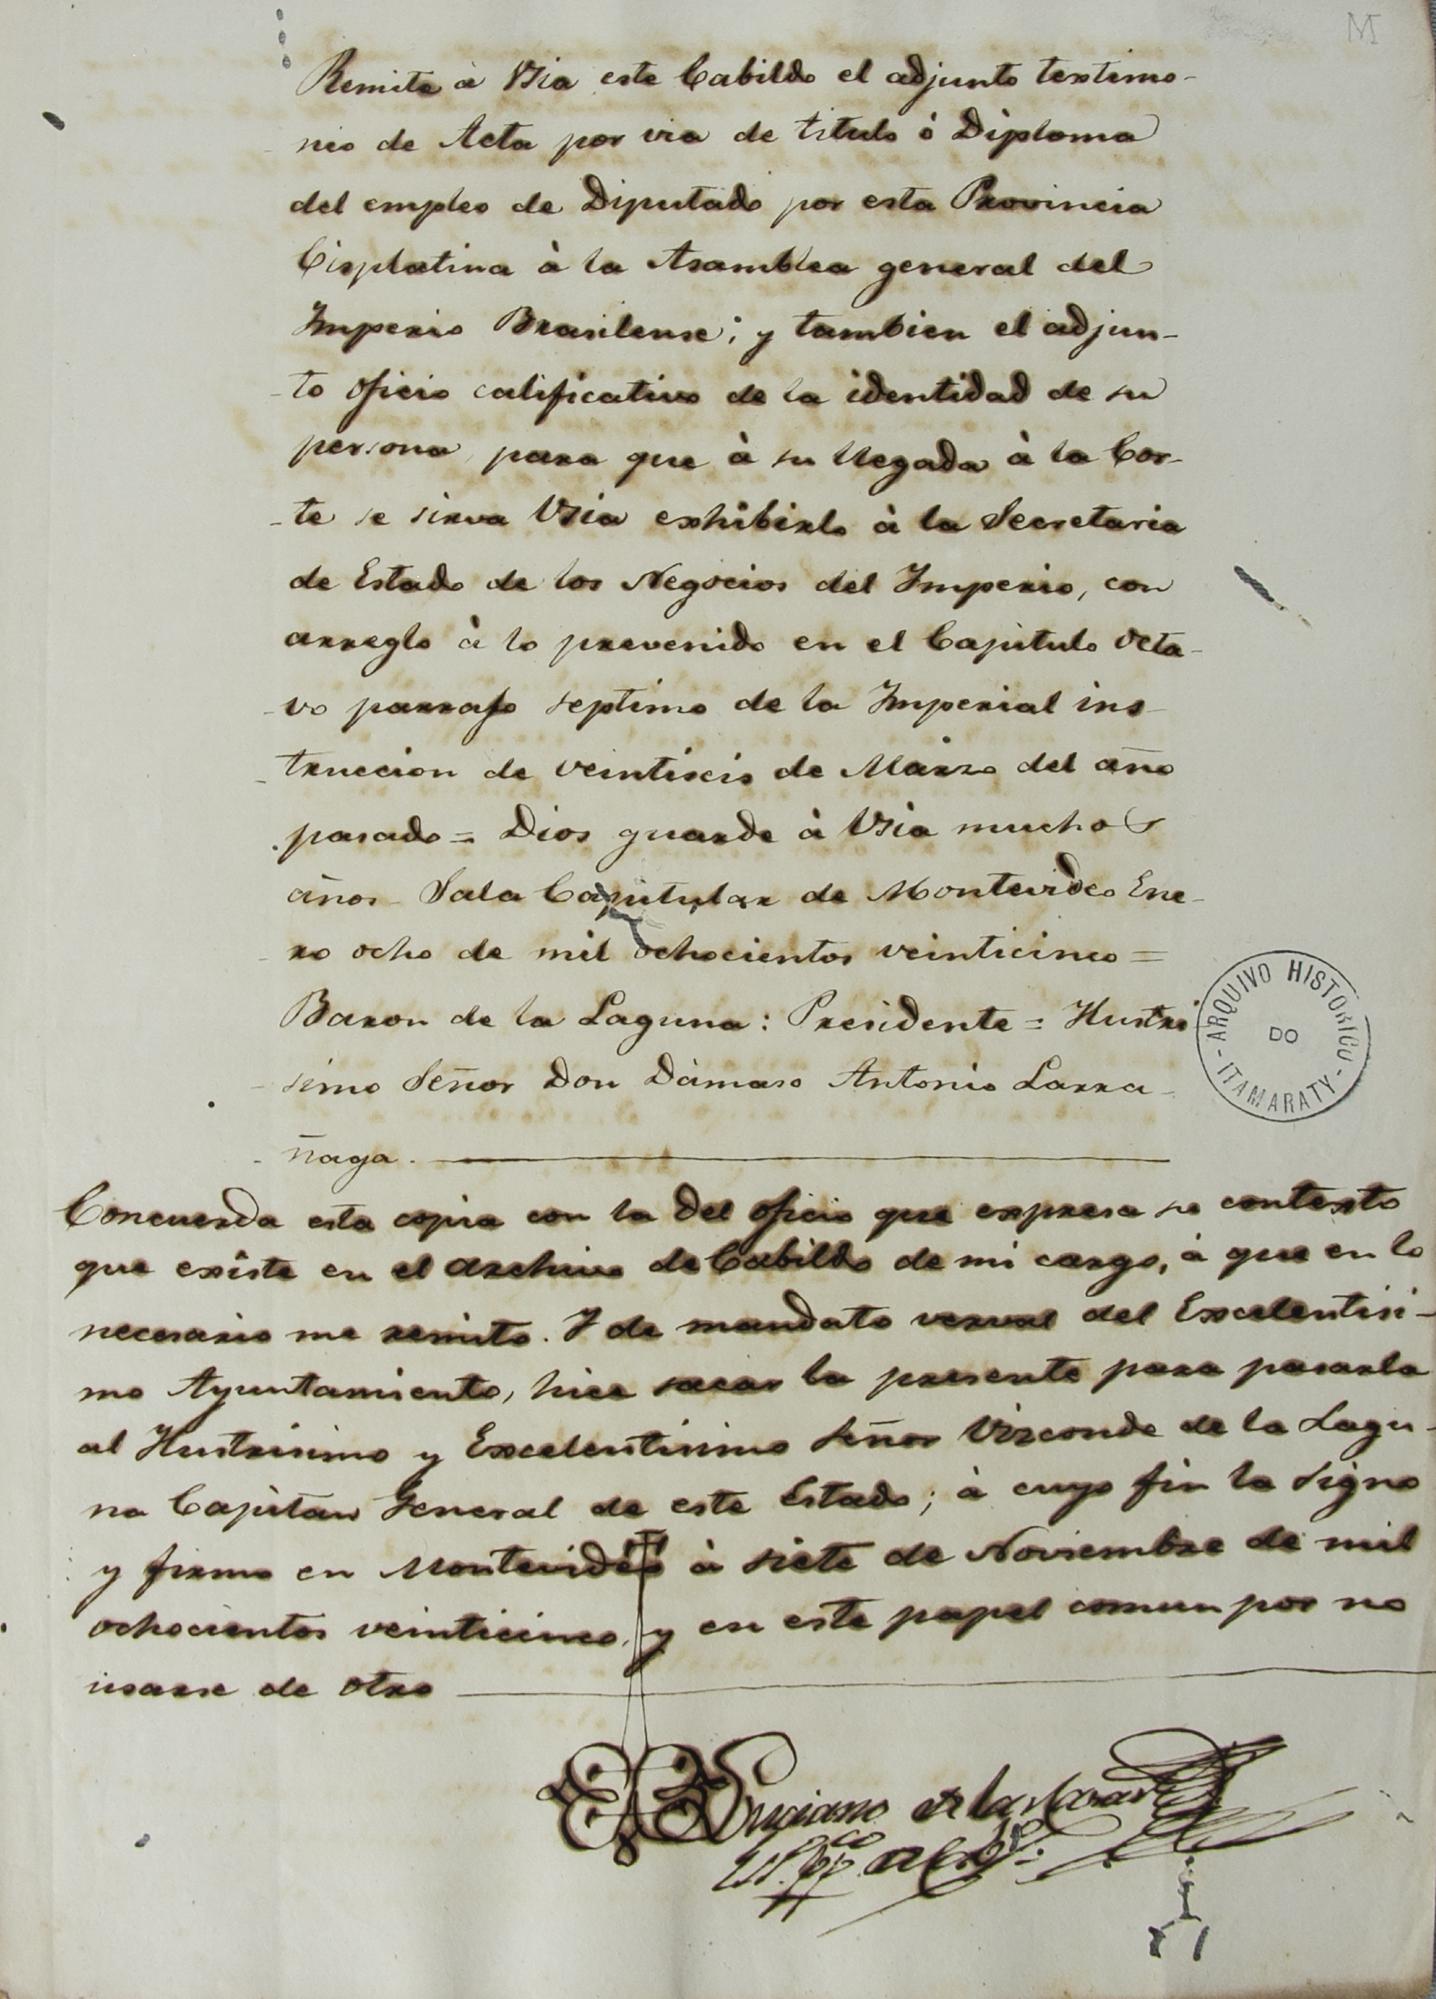 M
Remite à Vsia este Cabildo el adjunto testimo-
nio de Acta por via de titulo ó Diploma
del empleo de Diputado por esta Provincia
Cisplatina à la Asamblea general del
Imperio Brasilense; y tambien el adjun-
-to oficio calificativo de la identidad de su
persona, para que à su llegada à la Cor-
-te se sirva Vsia exhibirlo à la Secretaria
de Estado de los Negocios del Imperio, con
arreglo à lo prevenido en el Capitulo octa-
-vo parrafo septimo de la Imperial ins
-truccion de veintiseis de Marzo del año
pasado = Dios guarde à Vsia muchos
años - Sala Capitular de Montevideo Ene-
-ro ocho de mil ochocientos veinticinco =
Baron de la Laguna: Presidente = Ilustri
-simo Señor Don Dàmaso Antonio Larra-
-ñaga.
ARQUIVO HISTORICO
DO
- ITAMARATY -
Concuerda esta copia con la del oficio que expresa su contexto
que existe en el archivo de Cabildo de mi cargo, à que en lo
necesario me remito. Y de mandato verval del Excelentisi-
mo Ayuntamiento, hice sacar la presente para pasarla
al Ilustrisimo y Excelentisimo Señor Vizconde de la Lagu-
na Capitan General de este Estado; à cuyo fin la signo
y firmo en Montevidéo à siete de Noviembre de mil
ochocientos veinticinco, y en este papel comun por no
usarse de otro
Luciano de las Casas